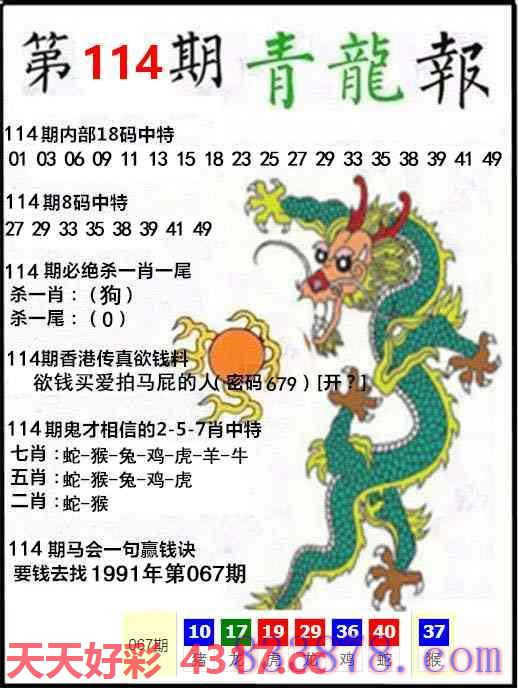 第114期青龍報
114期内部18码中特
01 03 06 09 11 13 15 18 23 25 27 29 33 35 38 39 41 49
114期8码中特
27 29 33 35 38 39 41 49
114期必绝杀一肖一尾
杀一肖：（狗）
杀一尾：（0）
114期香港传真欲钱料
欲钱买爱拍马屁的人（密码679）[开？]
114期鬼才相信的2-5-7肖中特
七肖：蛇-猴-兔-鸡-虎-羊-牛
五肖：蛇-猴-兔-鸡-虎
二肖：蛇-猴
114期马会一句赢钱诀
要钱去找1991年第067期
067期 10 17 19 29 36 40 37
猪 龙 虎 龙 鸡 蛇 猴
天天好彩 4317.cc